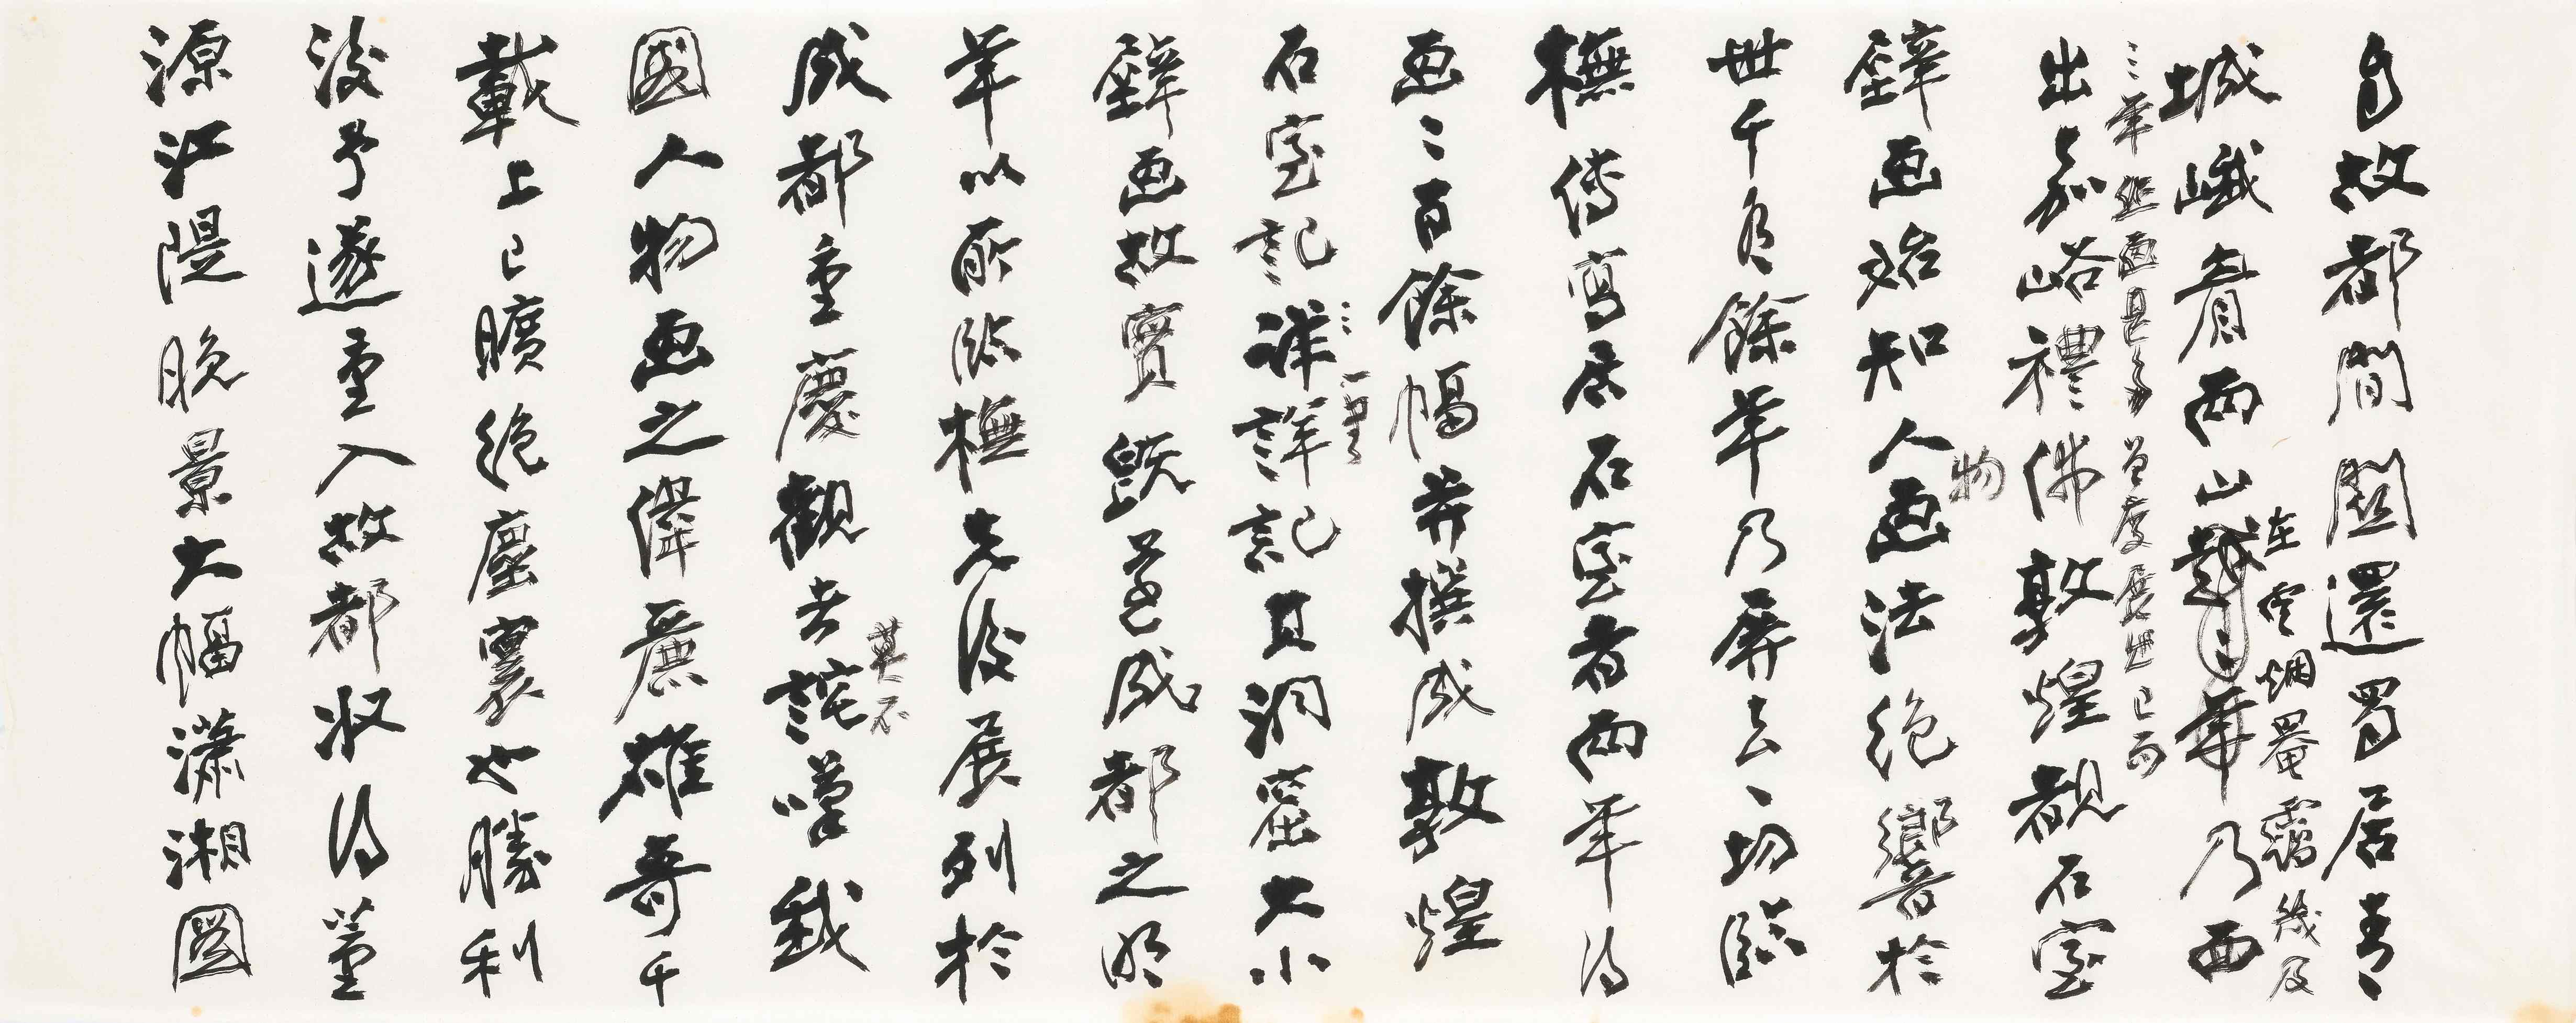 自故都間關還蜀居青
城峨眉兩山越二年乃西
在雲烟罨靄幾及
出嘉峪禮佛敦煌觀石室
三年
壁畫始知人畫法絕響於
物
世千有餘年乃屏去一切臨
橅傳寫居石室者兩年得
畫二百餘幅并撰成敦煌
石室記詳詳記其洞窟大小
壁畫故實既還成都之明
年以所臨橅先後展列於
成都重慶觀者詫嘆我
莫不
國人物畫之偉麗雄奇千
載上已曠絕塵寰也勝利
後予遂重入故都收得董
源江隄晚景大幅瀟湘圖